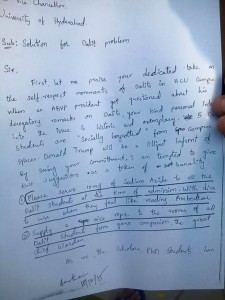 Vice Chancellor
University of Hyderabad.
Sub: Solution for Dalit problem
Sir,
First let me praise your dedicated take on
the self-respect movements of dalits in HCU Campus
when an ABVP president got questioned about his
derogatory remarks on dalits, your kind personal
into the issue is historic and exemplary. 5
students are "socially boycotted" from campus
space. Donald Trump will be a lilliput infront of
By seeing your commitment, I am tempted to give
two suggestions as a token of
① Please serve 10mg of Sodium Azide to all the
Dalit students at the time of admission. With direction
use when they feel like reading Ambedkar
② Supply a nice rope to the rooms of all
Dalit students from your companion, the great
Chief Warden
As we, the scholars, PhD students have
18/12/15